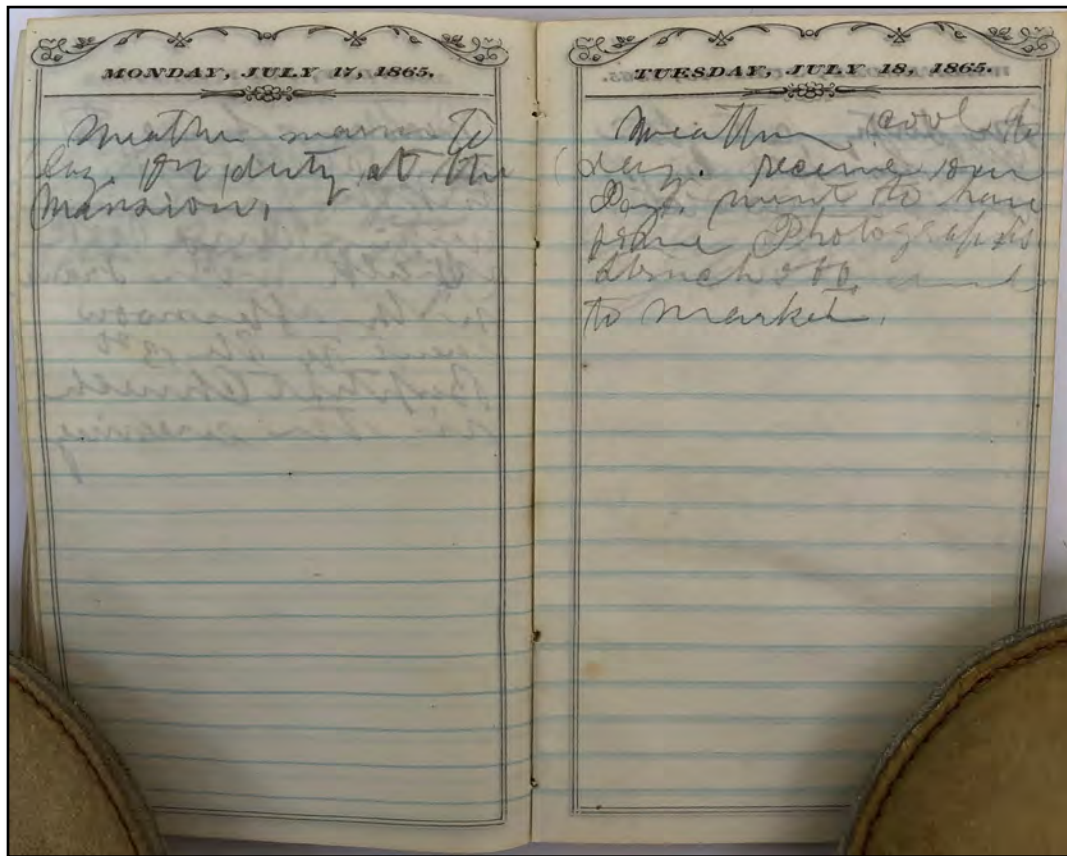 MONDAY, JULY 17, 1865.
Weather warm to
day. On duty at the
Mansion.
TUESDAY, JULY 18, 1865.
Weather cool to
day. receive our
Pay. went to have
some Photographs
Struck off. went
to market.